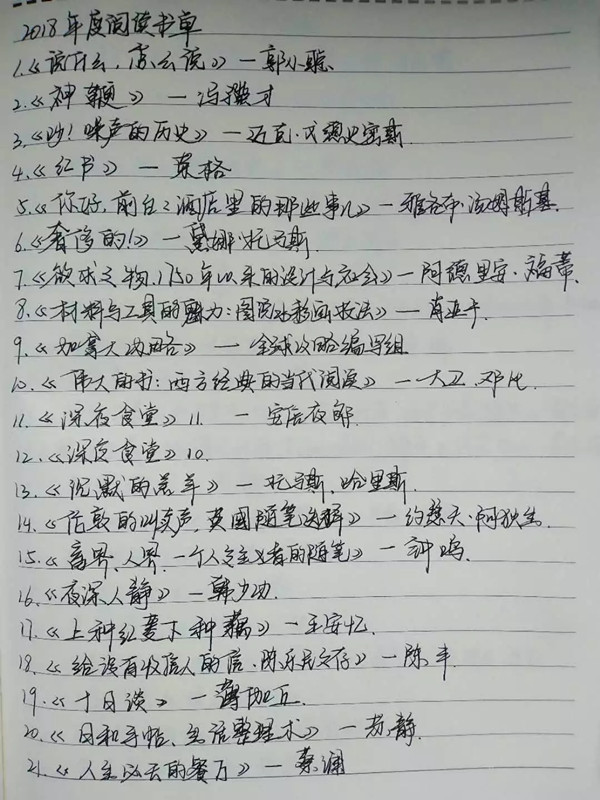 2018年度阅读书单
1.《说什么,怎么说》—郭小聪
2.《神鞭》—冯骥才
3.《吵!噪声的历史》—迈克·戈德史密斯
4.《红书》—荣格
5.《你好,前台:酒店里的那些事儿》—雅各布·汤姆斯基.
6.《奢侈的!》—黛娜·托马斯
7.《欲求之物.1750年以来的设计与社会》—阿德里安·福蒂.
8.《材料与工具的魅力:图说水彩画技法》—肖亚卡.
9.《加拿大攻略》—全球攻略编写组
10.《伟大的书:西方经典的当代阅读》—大卫.邓比.
11.《深夜食堂》11. —安倍夜郎
12.《深夜食堂》10.
13.《沉默的羔羊》—托马斯.哈里斯.
14.《伦敦的叫卖声,英国随笔选译》—约瑟夫·阿狄生
15.《畜界,人界,一个人文主义者的随笔》—钟鸣.
16.《夜深人静》—韩少功.
17.《上种红菱下种藕》—王安忆.
18.《给没有收信人的信.陈乐民文存》—陈丰
19.《十日谈》—薄伽丘.
20.《日和手帖,生活整理术》—苏静.
21.《人生必去的餐厅》—蔡澜